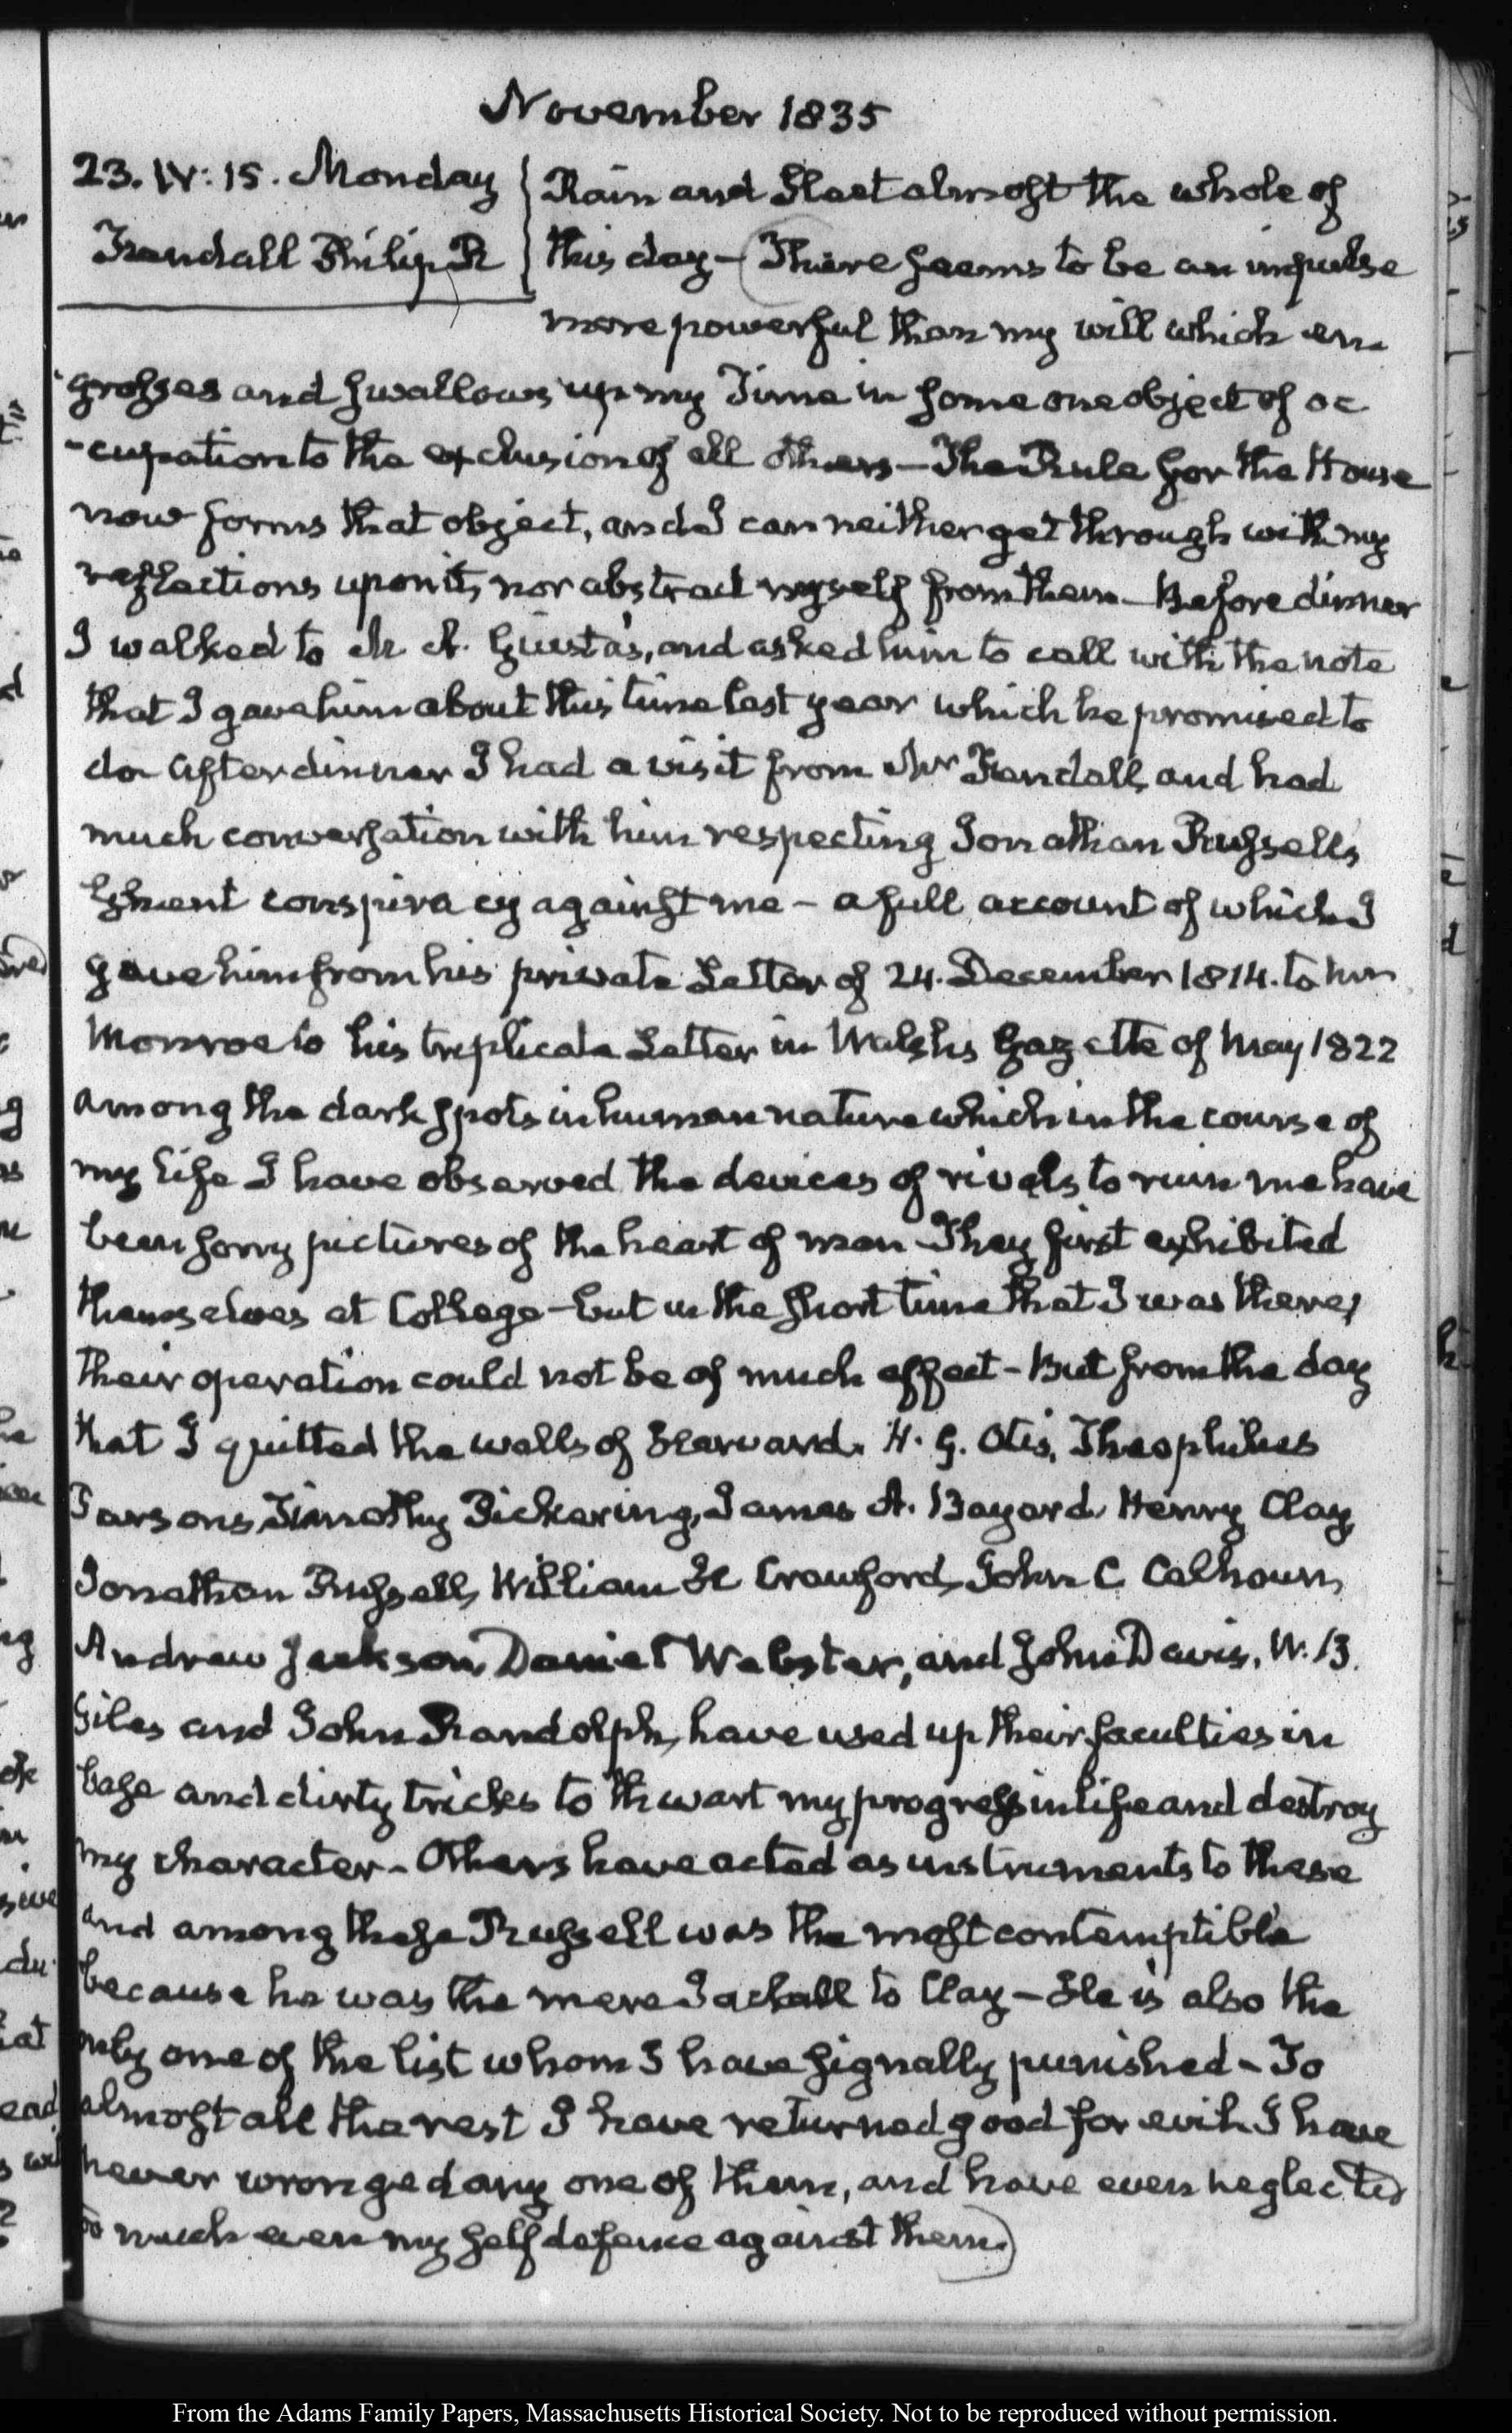 November 1835
23. IV: 15. Monday
Fendall Philip R
Rain and Sleet almost the whole of
this day – There seems to be an impulse
more powerful than my will which en
grosses and swallows up my Time in some one object of oc
-cupation to the exclusion of all others – The Rule for the House
now forms that object, and I can neither get through with my
reflections upon it, nor abstract myself from them – Before dinner
I walked to Mr A. Giusta's, and asked him to call with the note
that I gave him about this time last year which he promised to
do After dinner I had a visit from Mr Fendall, and had
much conversation with him respecting Jonathan Russell's
Ghent conspiracy against me – a full account of which I
gave him from his private Letter of 24. December 1814. to Mr
Monroe to his triplicate Letter in Walsh's Gazette of May 1822
Among the dark spots in human nature which in the course of
my life I have observed the devices of rivals to ruin me have
been sorry pictures of the heart of man They first exhibited
themselves at College – but in the short time that I was there,
their operation could not be of much effect – But from the day
that I quitted the walls of Harvard. H. G. Otis, Theophilus
Parsons, Timothy Pickering, James A. Bayard, Henry Clay,
Jonathan Russell, William H Crawford, John C. Calhoun,
Andrew Jackson, Daniel Webster, and John Davis, W. B.
Giles and John Randolph, have used up their faculties in
base and dirty tricks to thwart my progress in life and destroy
my character – Others have acted as instruments to these
and among these Russell was the most contemptible
because he was the mere Jackall to Clay – He is also the
only one of the list whom I have signally punished – To
almost all the rest I have returned good for evil. I have
never wronged any one of them, and have even neglected
too much even my self defence against them.
From the Adams Family Papers, Massachusetts Historical Society. Not to be reproduced without permission.